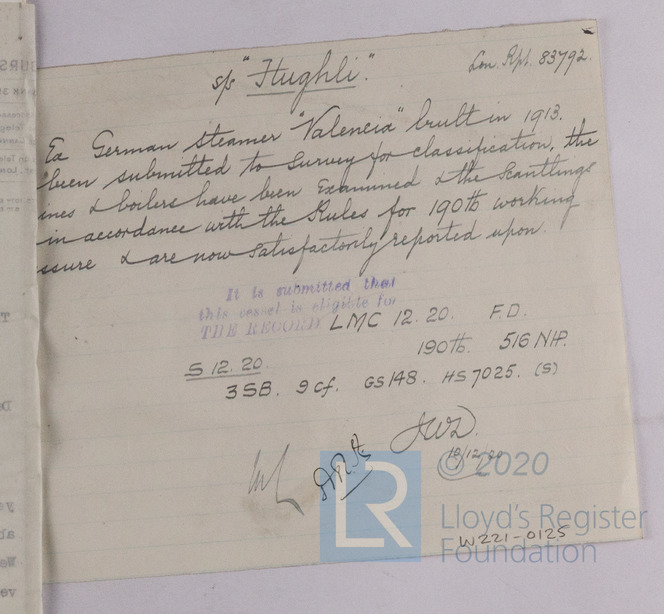 s/s "Hughli".
Lon. Rpt. 83792.
Ex German steamer "Valencia" built in 1913.
been submitted to survey for classification, the
ines & boilers have been Examined & the Scantlings
in accordance with the Rules for 190 lb working
ssure & are now satisfactorily reported upon.
It is submitted that
this vessel is eligible for
THE RECORD LMC 12.20. F.D.
190 lb. 516 NHP.
S 12.20.
3SB. 9cf. GS 148. HS 7025. (S)
JWD.
18/12/20
LR
© 2020
Lloyd's Register
Foundation
W221-0125